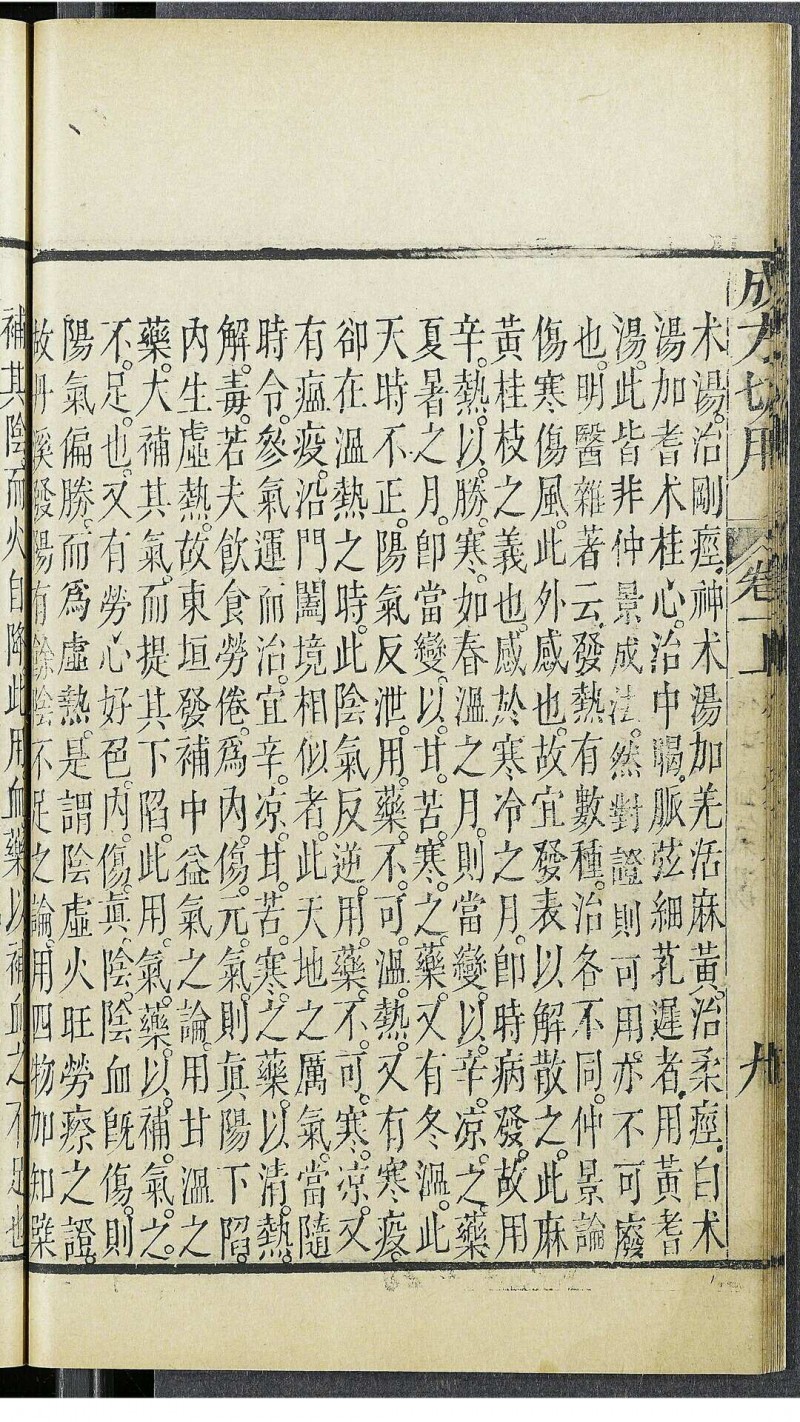 成方切用
卷一上
九
术湯。治剛痙。神术湯加羌活麻黃。治柔痙。白术
湯加耆术桂心。治中暍。脈弦細芤遲者。用黃耆
湯。此皆非仲景成法。然對證則可用。亦不可廢
也。明醫雜著云。發熱有數種。治各不同。仲景論
傷寒傷風。此外感也。故宜發表以解散之。此麻
黃桂枝之義也。感於寒冷之月。卽時病發。故用
辛。熱。以。勝。寒。如春溫之月。則當變。以。辛。凉。之。藥
夏暑之月。卽當變。以。甘。苦。寒。之。藥。又有冬溫。此
天時不正。陽氣反泄。用。藥。不。可。溫。熱。又有寒疫。
卻在溫熱之時。此陰氣反逆。用。藥。不。可。寒。凉。又
有瘟疫。沿門闔境相似者。此天地之厲氣。當隨
時令。參氣運而治。宜辛。凉。甘。苦。寒。之藥。以清。熱。
解。毒。若夫飲食勞倦。爲內傷。元。氣。則眞陽下陷。
內生虛熱。故東垣發補中益氣之論。用甘溫之
藥。大補其氣。而提其下陷。此用。氣。藥。以。補。氣。之。
不。足。也。又有勞心好色。內。傷。眞。陰。陰血旣傷。則
陽氣偏勝。而爲虛熱。是謂陰虛火旺勞瘵之證。
故丹溪發陽有餘陰不足之論。用四物加知檗
補其陰而火自降此用血藥以補血之不足也